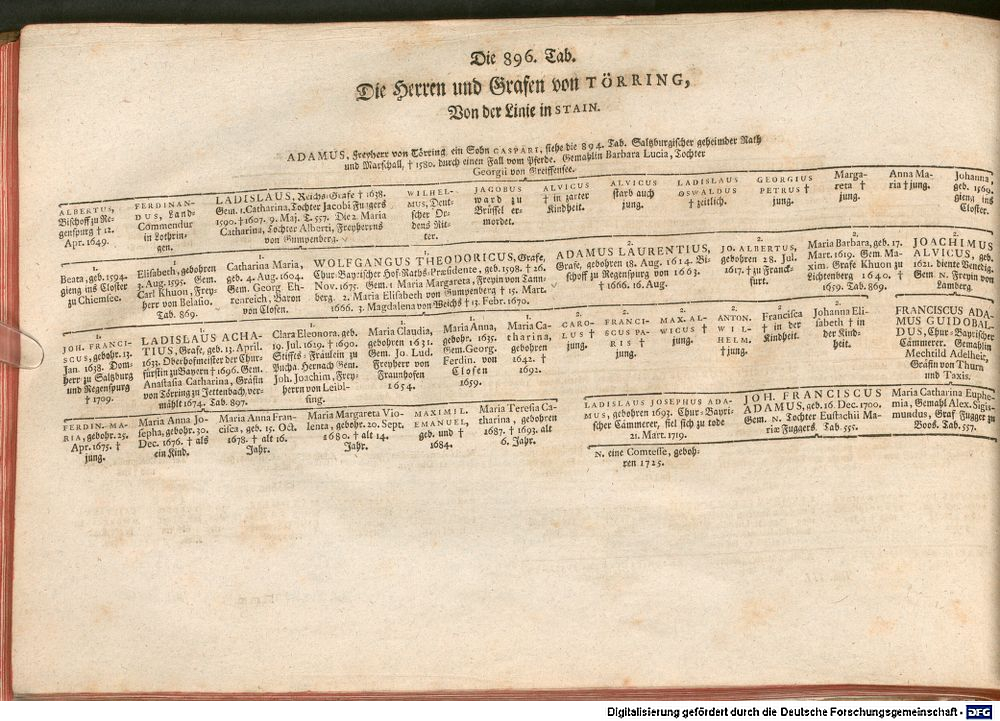 Die 896. Tab.
Die Herren und Grafen von TÖRRING,
Von der Linie in STAIN.
ADAMUS, Freyherr von Törring, ein Sohn CASPARI, siehe die 894. Tab. Saltzburgischer geheimder Rath
und Marschall, † 1580. durch einen Fall vom Pferde. Gemahlin Barbara Lucia, Tochter
Georgii von Greiffensee.
ALBERTUS,
Bischoff zu Re-
genspurg † 12.
Apr. 1649.
FERDINAN-
DUS, Land-
Commendur
in Lothrin-
gen.
LADISLAUS, Reichs-Grafe † 1638.
Gem. 1. Catharina, Tochter Jacobi Fuggers
1590. † 1607. 9. Maj. T. 557. Die 2. Maria
Catharina, Tochter Alberti, Freyherrns
von Gumpenberg.
WILHEL-
MUS, Deut-
scher Or-
dens Rit-
ter.
JACOBUS
ward zu
Brüssel er-
mordet.
ALVICUS
† in zarter
Kindheit.
ALVICUS
starb auch
jung.
LADISLAUS
OSWALDUS
† zeitlich.
GEORGIUS
PETRUS †
jung.
Marga-
reta †
jung.
Anna Ma-
ria † jung.
Johanna,
geb. 1569.
gieng ins
Closter.
1.
Beata, geb. 1594.
gieng ins Closter
zu Chiemsee.
1.
Elisabeth, gebohren
3. Aug. 1595. Gem.
Carl Khuon, Frey-
herr von Belasio.
Tab. 869.
1.
Catharina Maria,
geb. 4. Aug. 1604.
Gem. Georg Eh-
renreich, Baron
von Closen.
1.
WOLFGANGUS THEODORICUS, Grafe,
Chur-Bayrischer Hof-Raths-Præsidente, geb. 1598. † 26.
Nov. 1675. Gem. 1 Maria Margareta, Freyin von Tann-
berg. 2. Maria Elisabeth von Gumpenberg † 15. Mart.
1666. 3. Magdalena von Weichs † 13. Febr. 1670.
2.
ADAMUS LAURENTIUS,
Grafe, gebohren 18. Aug. 1614. Bi-
schoff zu Regenspurg von 1663.
† 1666. 16. Aug.
2.
JO. ALBERTUS,
gebohren 28. Jul.
1617. † zu Franck-
furt.
2.
Maria Barbara, geb. 17.
Mart. 1619. Gem. Ma-
xim. Grafe Khuon zu
Lichtenberg 1640. †
1659. Tab. 869.
2.
JOACHIMUS
ALVICUS, geb.
1621. diente Venedig.
Gem N. Freyin von
Lamberg.
1.
JOH. FRANCI-
SCUS, gebohr. 13.
Jan. 1638. Dom-
herr zu Saltzburg
und Regenspurg
† 1709.
1.
LADISLAUS ACHA-
TIUS, Grafe, geb. 13. April.
1633. Oberhofmeister der Chur-
fürstin zu Bayern † 1696. Gem.
Anastasia Catharina, Gräfin
von Törring zu Jettenbach, ver-
mählt 1674. Tab. 897.
1.
Clara Eleonora, geb.
19. Jul. 1629. † 1690.
Stiffts-Fräulein zu
Pucha. Hernach Gem.
Joh. Joachim, Frey-
herrn von Leibl-
fing.
1.
Maria Claudia,
gebohren 1631.
Gem. Jo. Lud.
Freyherr von
Fraunhofen
1654.
1.
Maria Anna,
gebohr. 1635.
Gem. Georg.
Ferdin. von
Closen
1659.
1.
Maria Ca-
tharina,
gebohren
1642. †
1692.
2.
CARO-
LUS †
jung.
2.
FRANCI-
SCUS PA-
RIS †
jung.
2.
MAX. AL-
WICUS †
jung.
2.
ANTON.
WIL-
HELM.
† jung.
Francisca
† in der
Kindheit.
Johanna Eli-
sabeth † in
der Kind-
heit.
FRANCISCUS ADA-
MUS GUIDOBAL-
DUS, Chur-Bayrischer
Cämmerer. Gemahlin
Mechtild Adelheit,
Gräfin von Thurn
und Taxis.
FERDIN. MA-
RIA, gebohr. 25.
Apr. 1675. †
jung.
Maria Anna Jo-
sepha, gebohr. 30.
Dec. 1676. † als
ein Kind.
Maria Anna Fran-
cisca, geb. 15. Oct.
1678. † alt 16.
Jahr.
Maria Margareta Vio-
lenta, gebohr. 20. Sept.
1680. † alt 14.
Jahr.
MAXIMIL.
EMANUEL,
geb. und †
1684.
Maria Teresia Ca-
tharina, gebohren
1687. † 1693. alt
6. Jahr.
LADISLAUS JOSEPHUS ADA-
MUS, gebohren 1693. Chur-Bayri-
scher Cämmerer, fiel sich zu tode
21. Mart. 1719.
JOH. FRANCISCUS
ADAMUS, geb. 16. Dec. 1700.
Gem. N. Tochter Eustachii Ma-
riæ Fuggers. Tab. 555.
Maria Catharina Euphe-
mia, Gemahl Alex. Sigis-
mundus, Graf Fugger zu
Boos. Tab. 557.
N. eine Comtesse, geboh-
ren 1725.
Digitalisierung gefördert durch die Deutsche Forschungsgemeinschaft - DFG